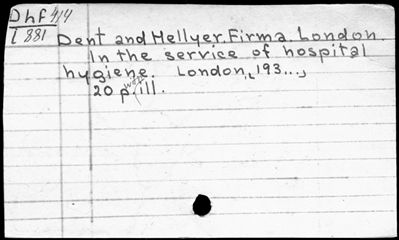 Dhf 414
l 881
Dent and Hellyer. Firma. London.
In the service of hospital
hygiene. London, 193...,
20 p. ill.